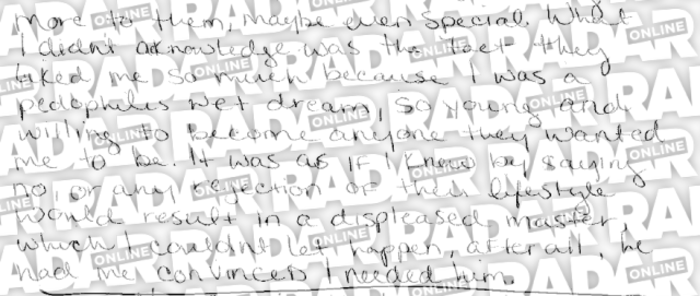 more to them, maybe even special. What
I didn't acknowledge was the fact they
liked me so much because I was a
pedophiles wet dream, so young and
willing to become anyone they wanted
me to be. It was as if I knew by saying
no or any rejection of their lifestyle
would result in a displeased master,
which I couldnt let happen, after all, he
had me convinced I needed him.
RADAR ONLINE